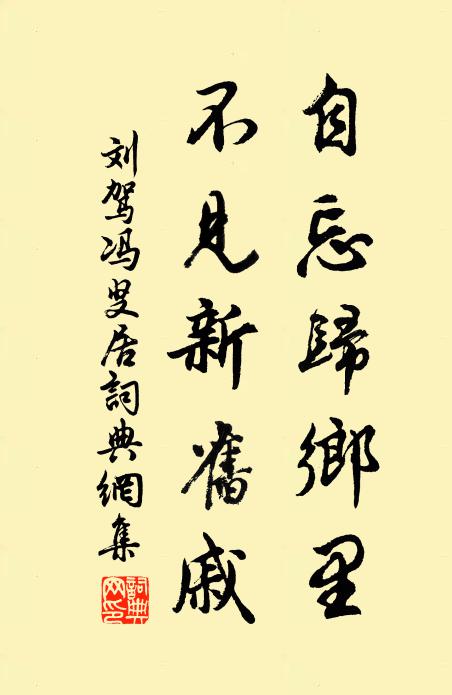 自忘歸鄉里
不见新舊戚
刘驾冯叟居詞典網集
詞典网印